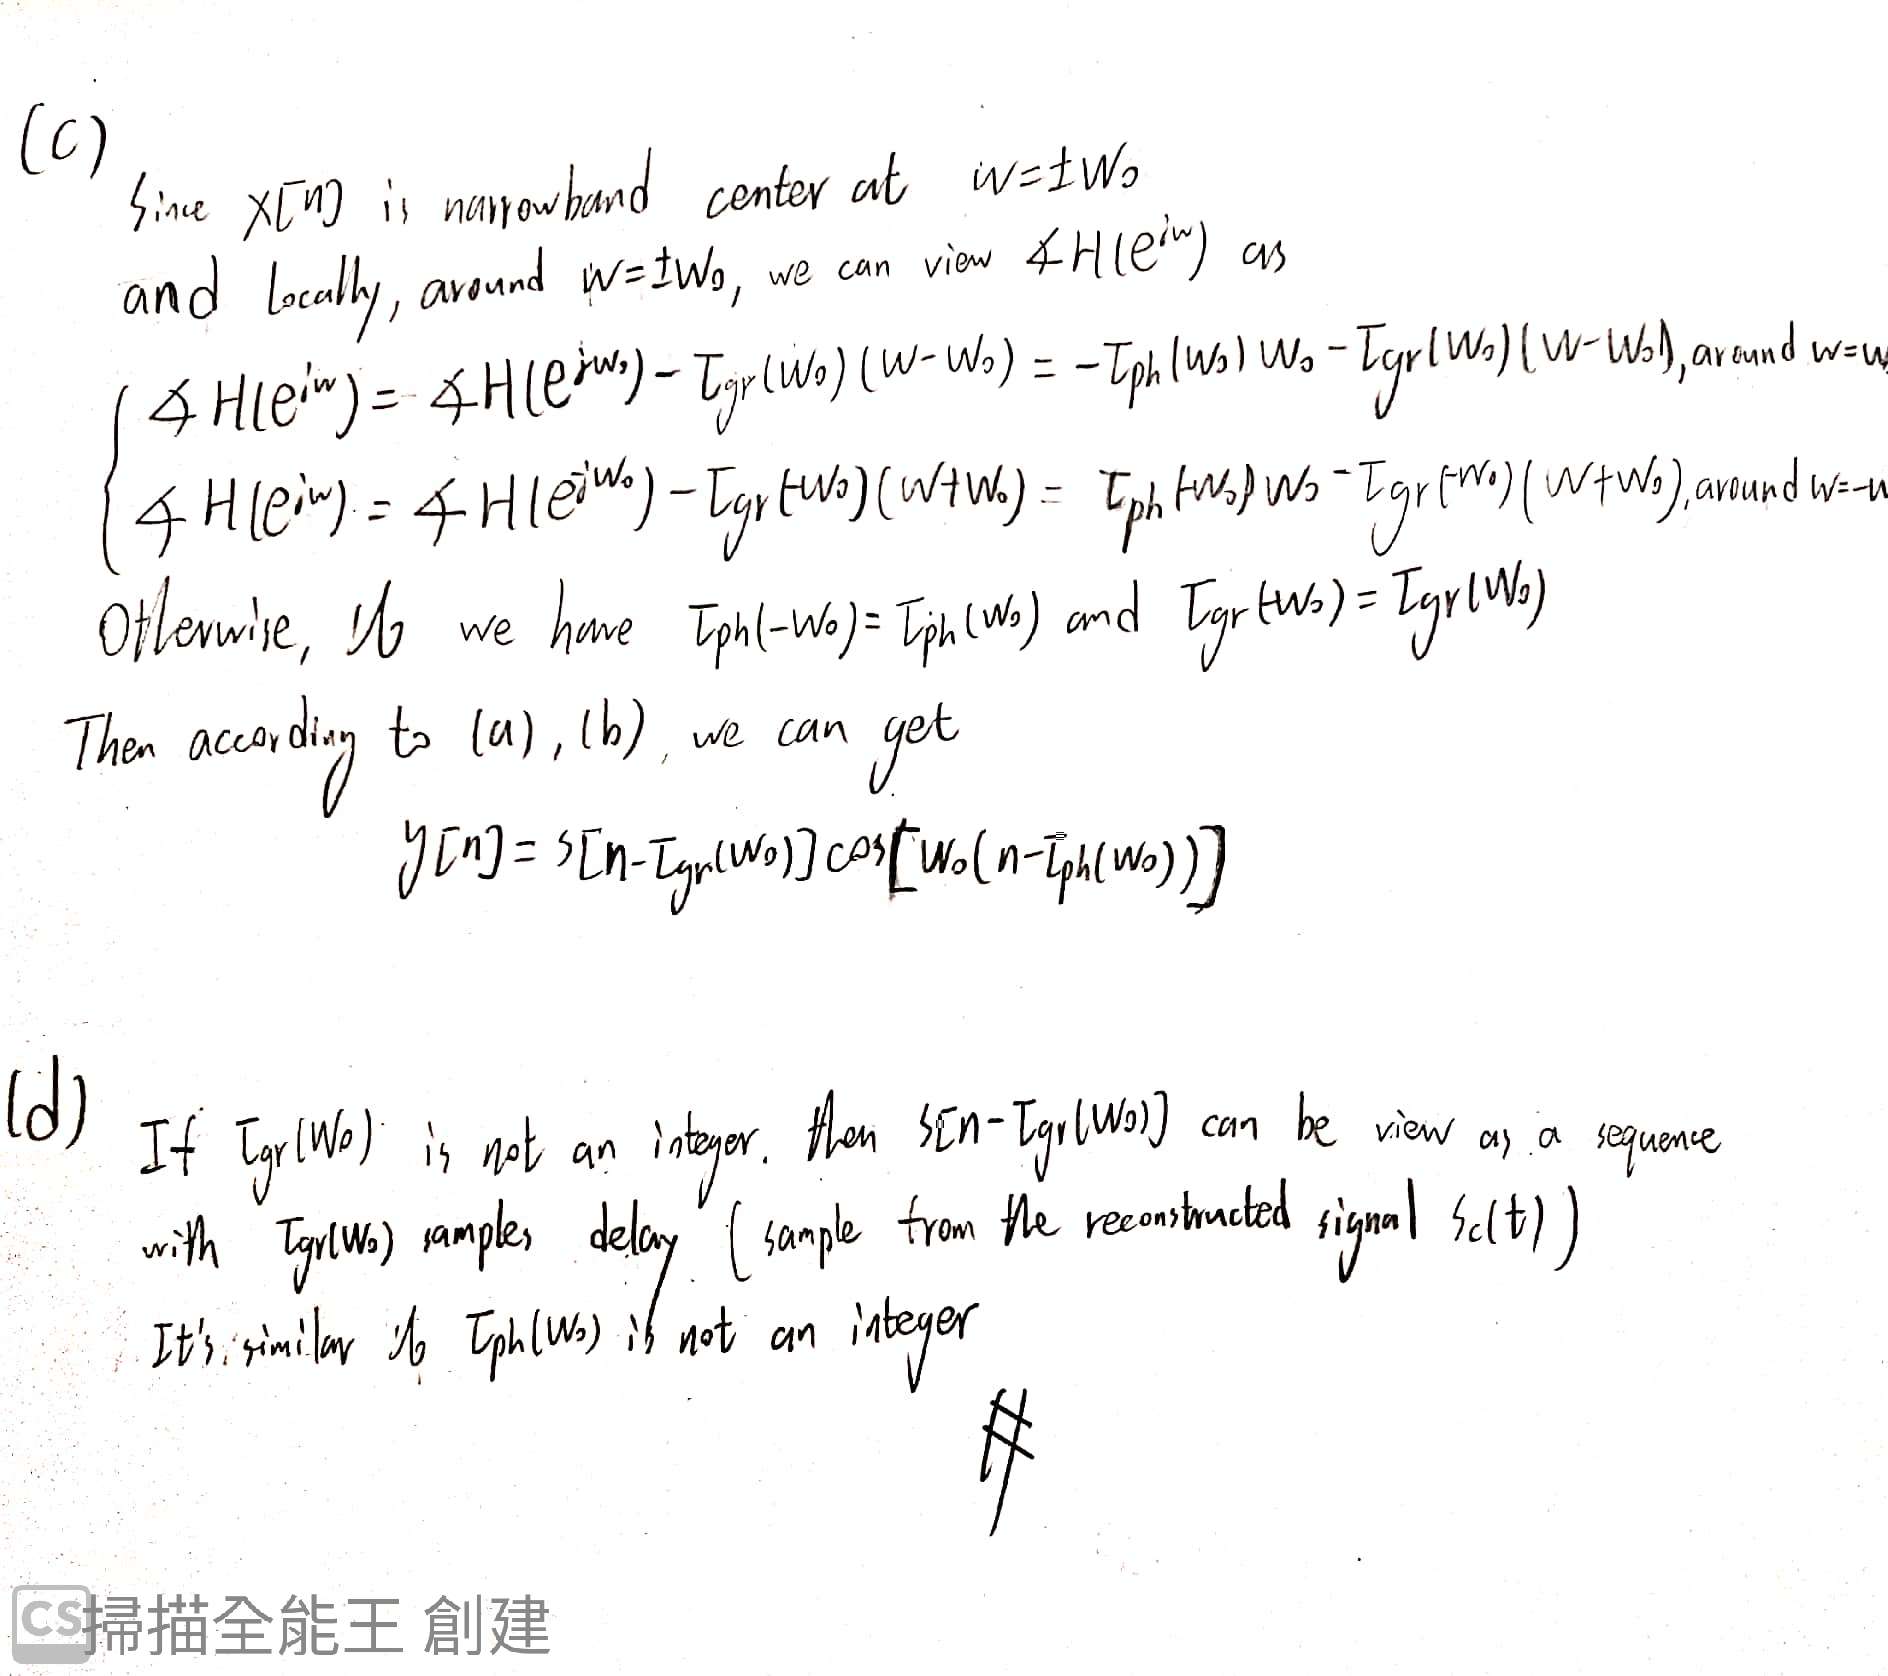 (c)
Since x[n] is narrowband center at w=±w₀
and locally, around w=±w₀, we can view ∡H(e^{jw}) as
∡H(e^{jw}) = ∡H(e^{jw₀}) - τgr(w₀)(w-w₀) = -τph(w₀)w₀ - τgr(w₀)(w-w₀), around w=w₀
∡H(e^{jw}) = ∡H(e^{jw₀}) - τgr(-w₀)(w+w₀) = τph(-w₀)w₀ - τgr(-w₀)(w+w₀), around w=-w
Otherwise, if we have τph(-w₀)=τph(w₀) and τgr(-w₀)=τgr(w₀)
Then according to (a), (b), we can get
y[n] = s[n-τgr(w₀)] cos[w₀(n-τph(w₀))]
(d)
If τgr(w₀) is not an integer. then s[n-τgr(w₀)] can be view as a sequence
with τgr(w₀) samples delay (sample from the reconstructed signal sc(t))
It's similar if τph(w₀) is not an integer
#
CS掃描全能王 創建